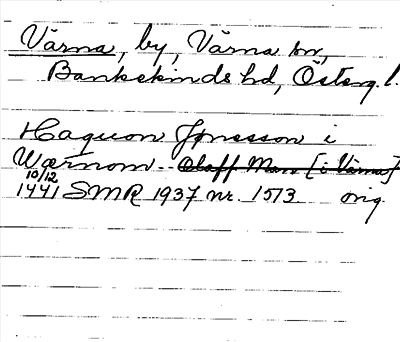 Värna, by, Värna sn,
Bankekinds hd, Österg. l.
Haquon Jonsson i
Wærnom - Olaff Man [i Värna]
10/12
1441 SMR 1937 nr. 1573 orig.